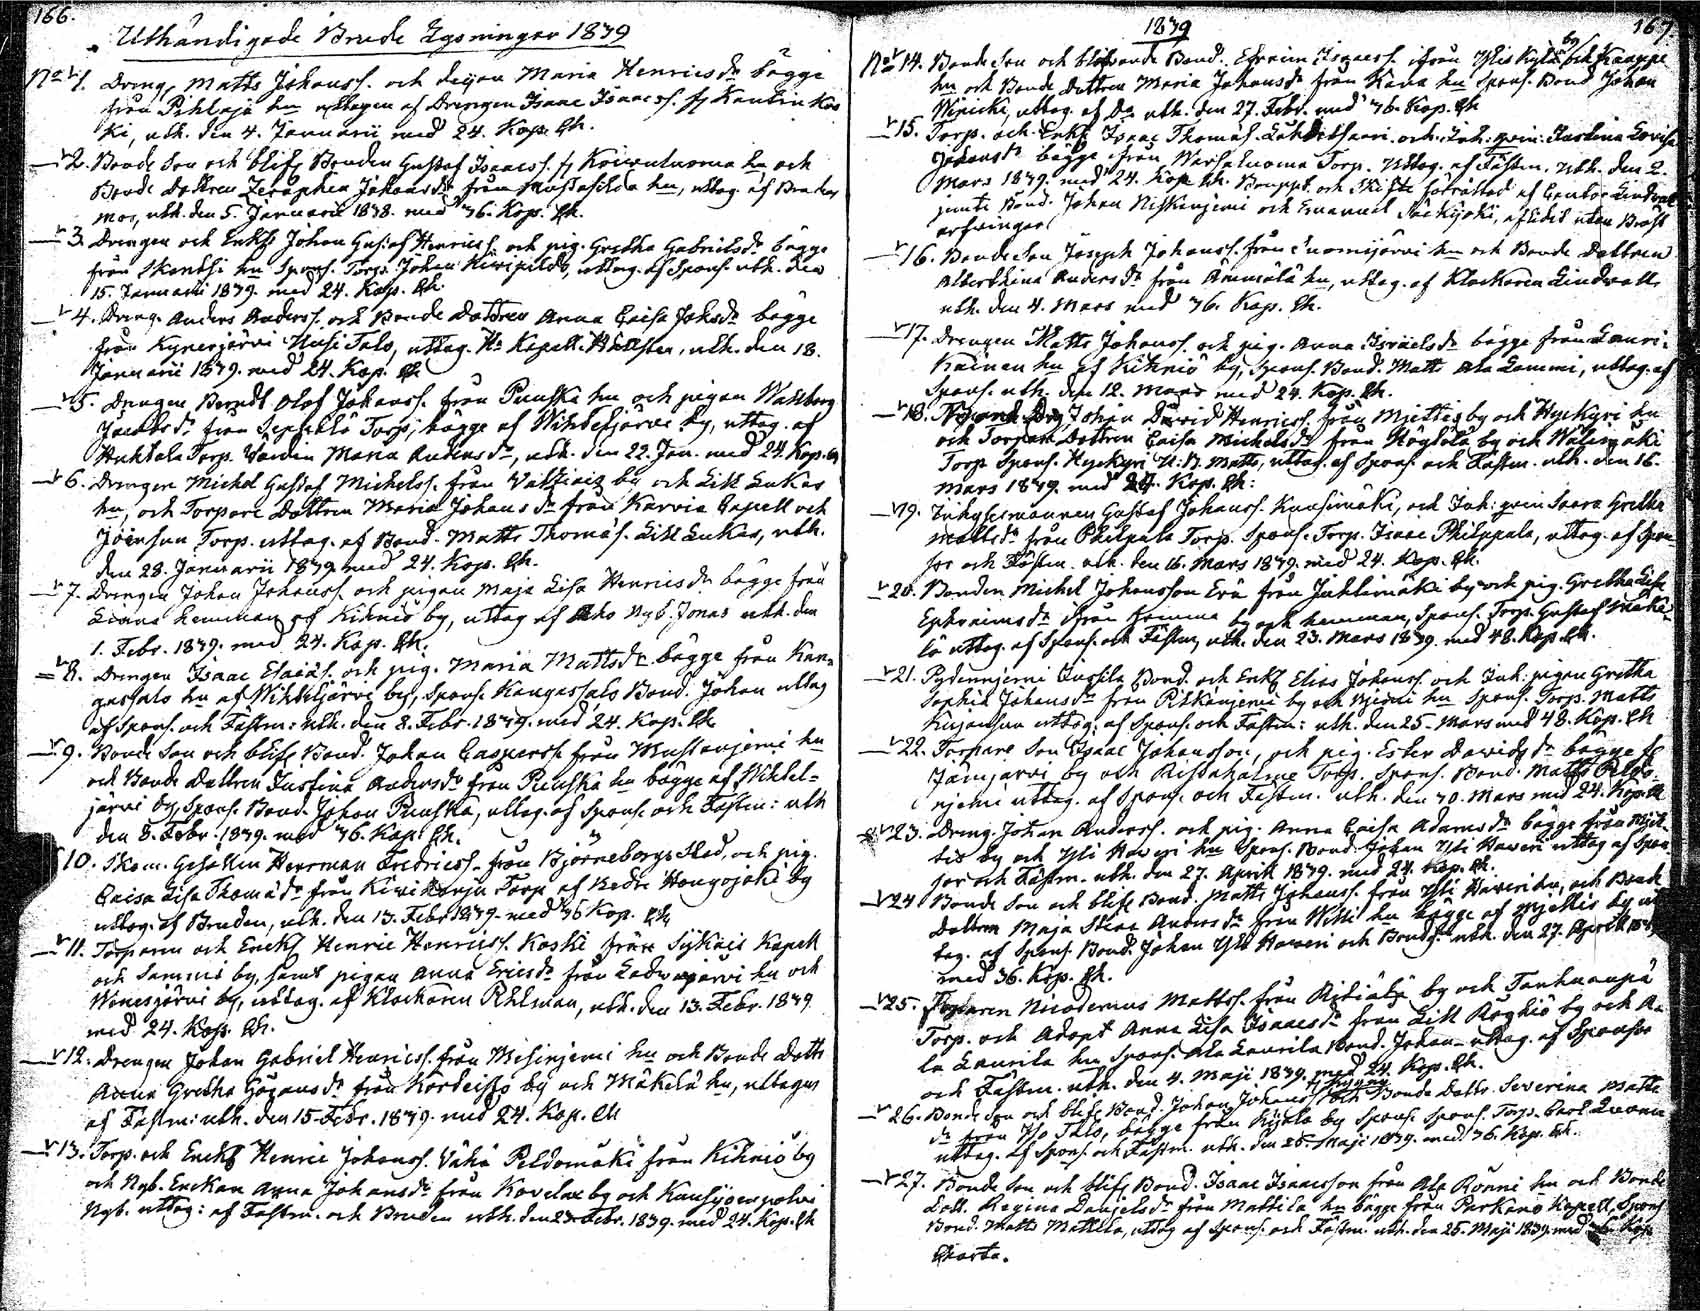 166.
Uthändigade Brude Lysningar 1839
No 1. Dreng. Matts Johanss. och deijan Maria Henricsdr bägge
från Pihlaja hn uttagen af Drengen Isaac Isaacss. fr Kantin Kos
ki, utk. den 4. Januarii med 24. Kop. Ch.
2. Bonde Son och blifv Bonden Gustaf Isaacss. fr Koivuluoma hn och
Bonde Dottren Zeraphia Johansdr från hn, uttag. af Brudens
mor, utk. den 5. Januarii 1838. med 36. Kop. Ch.
3. Drengen och Enkl. Johan Gustaf Henricss. och pig. Gretha Gabrielsdr bägge
från Skantsi hn Spons. Torp. Johan Kivipeldo, uttag. af Spons. utk. den
15. Januarii 1839. med 24. Kop. Ch.
4. Dreng. Anders Anderss. och Bonde Dottren Anna Caisa Johsdr bägge
från Kynerjärvi Uusi Talo, uttag. Hr Kapell. utk. den 18.
Januarii 1839. med 24. Kop. Ch
5. Drengen Berndt Olof Johanss. från Punska hn och pigan Wahlborg
Jacobsdr från Torp, bägge af Wihteljärvi by, uttag. af
Huhtala Torp. Värden Maria Andersdr, utk. den 22. Jan. med 24. Kop. Ch
6. Drengen Michel Gustaf Michelss. från by och Lill Lukas
hn, och Torpare Dottren Maria Johansdr från Karvia Capell och
Torp. uttag. af Bond. Matts Thomas. Lill Lukas, utk.
den 28. Januarii 1839 med 24. Kop. Ch.
7. Drengen Johan Johanss. och pigan Maja Lisa Henricsdr bägge från
Linna hemman af Kihniö by, uttag af Aho Nyb. Jonas utk. den
1. Febr. 1839. med 24. Kop. Ch.
8. Drengen Isaac Elaias. och pig. Maria Mattsdr bägge från Kan-
gassalo hn af Wihteljärvi by, Spons. Kangassalo Bond. Johan uttag
af Spons. och Fästm: utk. den 8. Febr. 1839. med 24. Kop. Ch
9. Bonde Son och blifv Bond. Johan Casperss. från Mustanjemi hn
och Bonde Dottren Justina Andersdr från Punska hn bägge af Wihtel-
järvi by, Spons. Bond. Johan Punska, uttag. af Spons. och Fästm: utk
den 8. Febr. 1839. med 36. Kop. Ch.
10. Skom. Gesällen Herrman Fredricss. från Björneborgs Stad, och pig.
Caisa Lisa Thomasdr från Torp af Kedri Hongojoki by
uttag. af Bruden, utk. den 13. Febr 1839. med 36 Kop. Ch
11. Torparen och Enckl Henric Henricss. Koski från Sijkais Kapell
och Sammi by, samt pigan Anna Ericsdr från Ladvajärvi hn och
Wenesjärvi by, uttag. af Klockaren Rhlman, utk. den 13. Febr. 1839
med 24. Kop. Ch.
12. Drengen Johan Gabriel Henricss. från hn och Bonde Dottr
Anna Gretha Göransdr från by och Mäkelä hn, uttagen
af Fästm: utk. den 15. Febr. 1839. med 24. Kop. Ch
13. Torp. och Enckl Henric Johanss. Vähä Peldomäki från Kihniö by
och Nyb. Enckan Anna Johansdr från Kovelax by och
Nyb. uttag: af Fästm. och Bruden utk. den 23. Febr. 1839. med 24. Kop. Ch
1839
167.
No 14. Bonde Son och blifvande Bond. Efraim Isaacss. ifrån Ylis Kylä by och Kauppi
hn och Bonde Dottren Maria Johansdr från Kana hn Spons. Bond Johan
uttag. af Do utk. den 27. Febr. med 36. Kop. Ch
15. Torp. och Enkl Isaac Thomas. och Inh. qvin. Carolina Lovisa
Johansdr bägge ifrån Torp. Uttag. af Fästm. utk. den 2.
Mars 1839. med 24. Kop Ch. och Skifte förrättad af Cantor Lindvall
jemte Bond. Johan Niskanjemi och Emanuel Säckijoki, afledit utan Bröst
arfvingar.
16. Bonde Son Joseph Johanss. från Suomijärvi hn och Bonde Dottren
Alberthina Andersdr från Ämmälä hn, uttag. af Klockaren Lindwall
utk. den 4. Mars med 36. Kop. Ch.
17. Drengen Matts Johanss. och pig. Anna Israelsdr bägge från Lauri-
Kainen hn af Kihniö by, Spons. Bond. Matts Ala Lammi, uttag. af
Spons. utk. den 12. Mars med 24. Kop. Ch.
18. Johan David Henricss. från Mjettis by och Hyckyri hn
och Torpare Dottren Caisa Michelsdr från by och Välimäki
Torp Spons. Hyckyri U: B. Matts, uttag. af Spons och Fästm. utk. den 16.
Mars 1839. med 24. Kop. Ch:
19. Inhysesmannen Gustaf Johanss. Kuusimäki, och Inh: qvin Saara Gretha
Mattsdr från Philpala Torp. Spons. Torp. Isaac Philppala, uttag. af Spon-
sor och Fästm. utk. den 16. Mars 1839. med 24. Kop. Ch.
20. Bonden Michel Johansson Erä från Juhtimäki by och pig. Gretha Lisa
Ephraimsdr ifrån by och hemman, Spons. Torp. Gustaf Mäke-
lä uttag. af Spons. och Fästm, utk. den 23. Mars 1839. med 48. Kop. Ch.
21. Pydennjemi Jussila Bond. och Enkl Elias Johanss. och Inh: pigan Gretha
Sophia Johansdr från Pitkänjemi by och Njemi hn Spons. Torp. Matts
uttag. af Spons. och Fästm: utk. den 25. Mars med 48. Kop. Ch
22. Torpare Son Isaac Johansson, och pig. Ester Davidsdr bägge fr
Jämijärvi by och Torp. Spons. Bond. Matts
njemi uttag. af Spons. och Fästm. utk. den 30. Mars med 24. Kop. Ch
23. Dreng Johan Anderss. och pig. Anna Caisa Adamsdr bägge från Mjet-
tis by och Yli Haveri hn Spons. Bond. Johan Yli Haveri uttag af Spon
sor och Fästm. utk. den 27. April 1839. med 24. Kop. Ch.
24 Bonde Son och blifv Bond. Matts Johanss. från Yli Haveri hn, och Bonde
Dottren Maja Stina Andersdr från Willi hn bägge af Mjettis by ut
tag. af Spons. Bond. Johan Yli Haveri och Brudg. utk. den 27. April 1839
med 36. Kop. Ch.
25. Torparen Nicodemus Mattss. från by och Tanhuanpä
Torp. och Adopt Anna Lisa Isaacsdr från Lill by och A-
la Laurila hn Spons. Ala Laurila Bond. Johan uttag. af Sponsor
och Fästm. utk. den 4. Maji 1839. med 24. Kop. Ch.
26. Bonde Son och blifv Bond. Johan Johanss och Bonde Dottr. Severina Matts
dr från Iso Talo, bägge från by Spons. Spons. Torp. Carl
uttag. af Spons. och Fästm. utk. den 25. Maji 1839. med 36. Kop. Ch.
27. Bonde Son och blifv Bond. Isaac Isaacsson från Ala Rönni hn och Bonde
Dott. Regina Danielsdr från Mattila hn bägge från Parkano Kapell, Spons
Bond. Matts Mattila, uttag af Spons. och Fästm. utk. den 25. Maji 1839. med 36. Kop.
Charta.